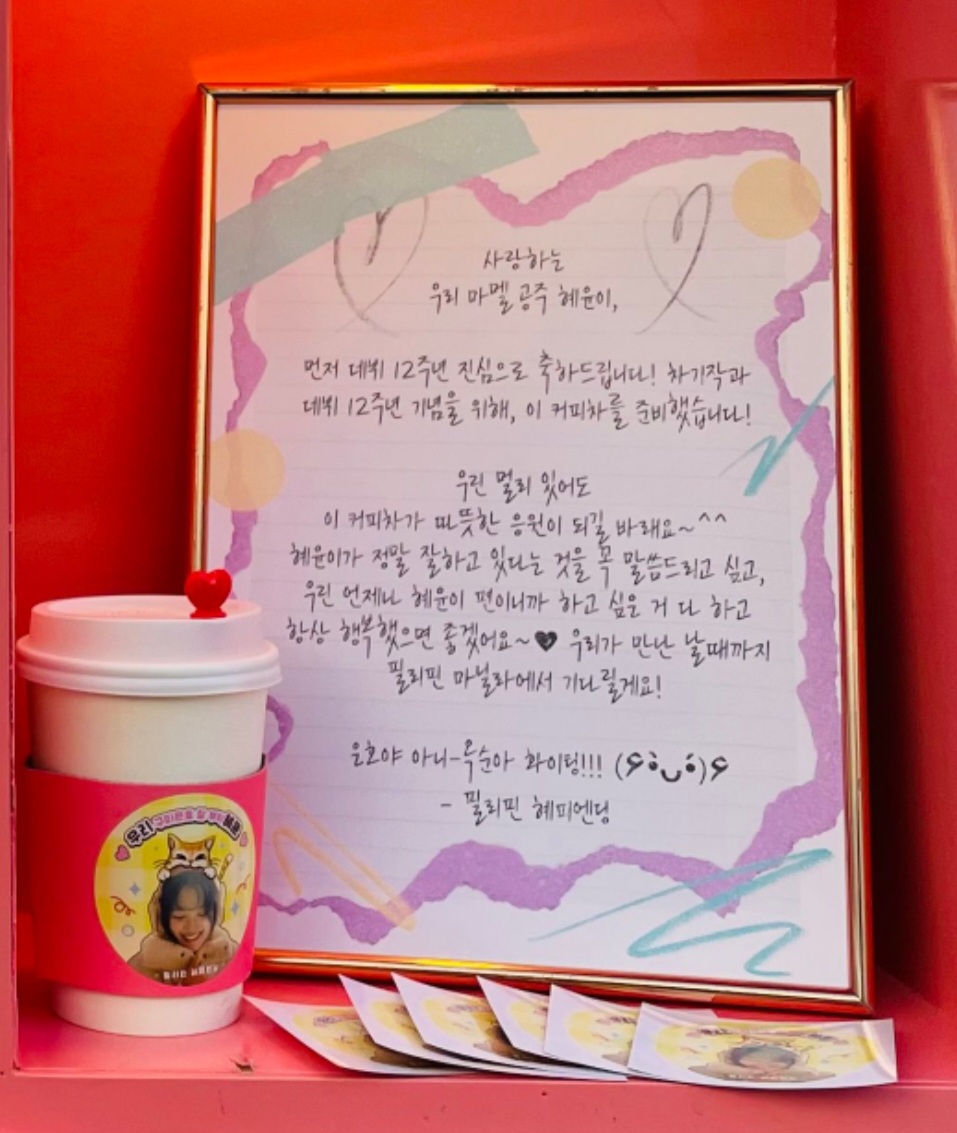 사랑하는
우리 마멜공주 혜윤이,
먼저 데뷔 12주년 진심으로 축하드립니다! 차기작과
데뷔 12주년 기념을 위해, 이 커피차를 준비했습니다!
우린 멀리 있어도
이 커피차가 따뜻한 응원이 되길 바래요~^^
혜윤이가 정말 잘하고 있다는 것을 꼭 말씀드리고 싶고,
우린 언제나 혜윤이 편이니까 하고 싶은 거 다 하고
항상 행복했으면 좋겠어요~🖤 우리가 만난 날때까지
필리핀 마닐라에서 기다릴게요!
은호야 아니-옥순아 화이팅!!! (۶•̀ᴗ•́)۶
- 필리핀 혜피엔딩
우리